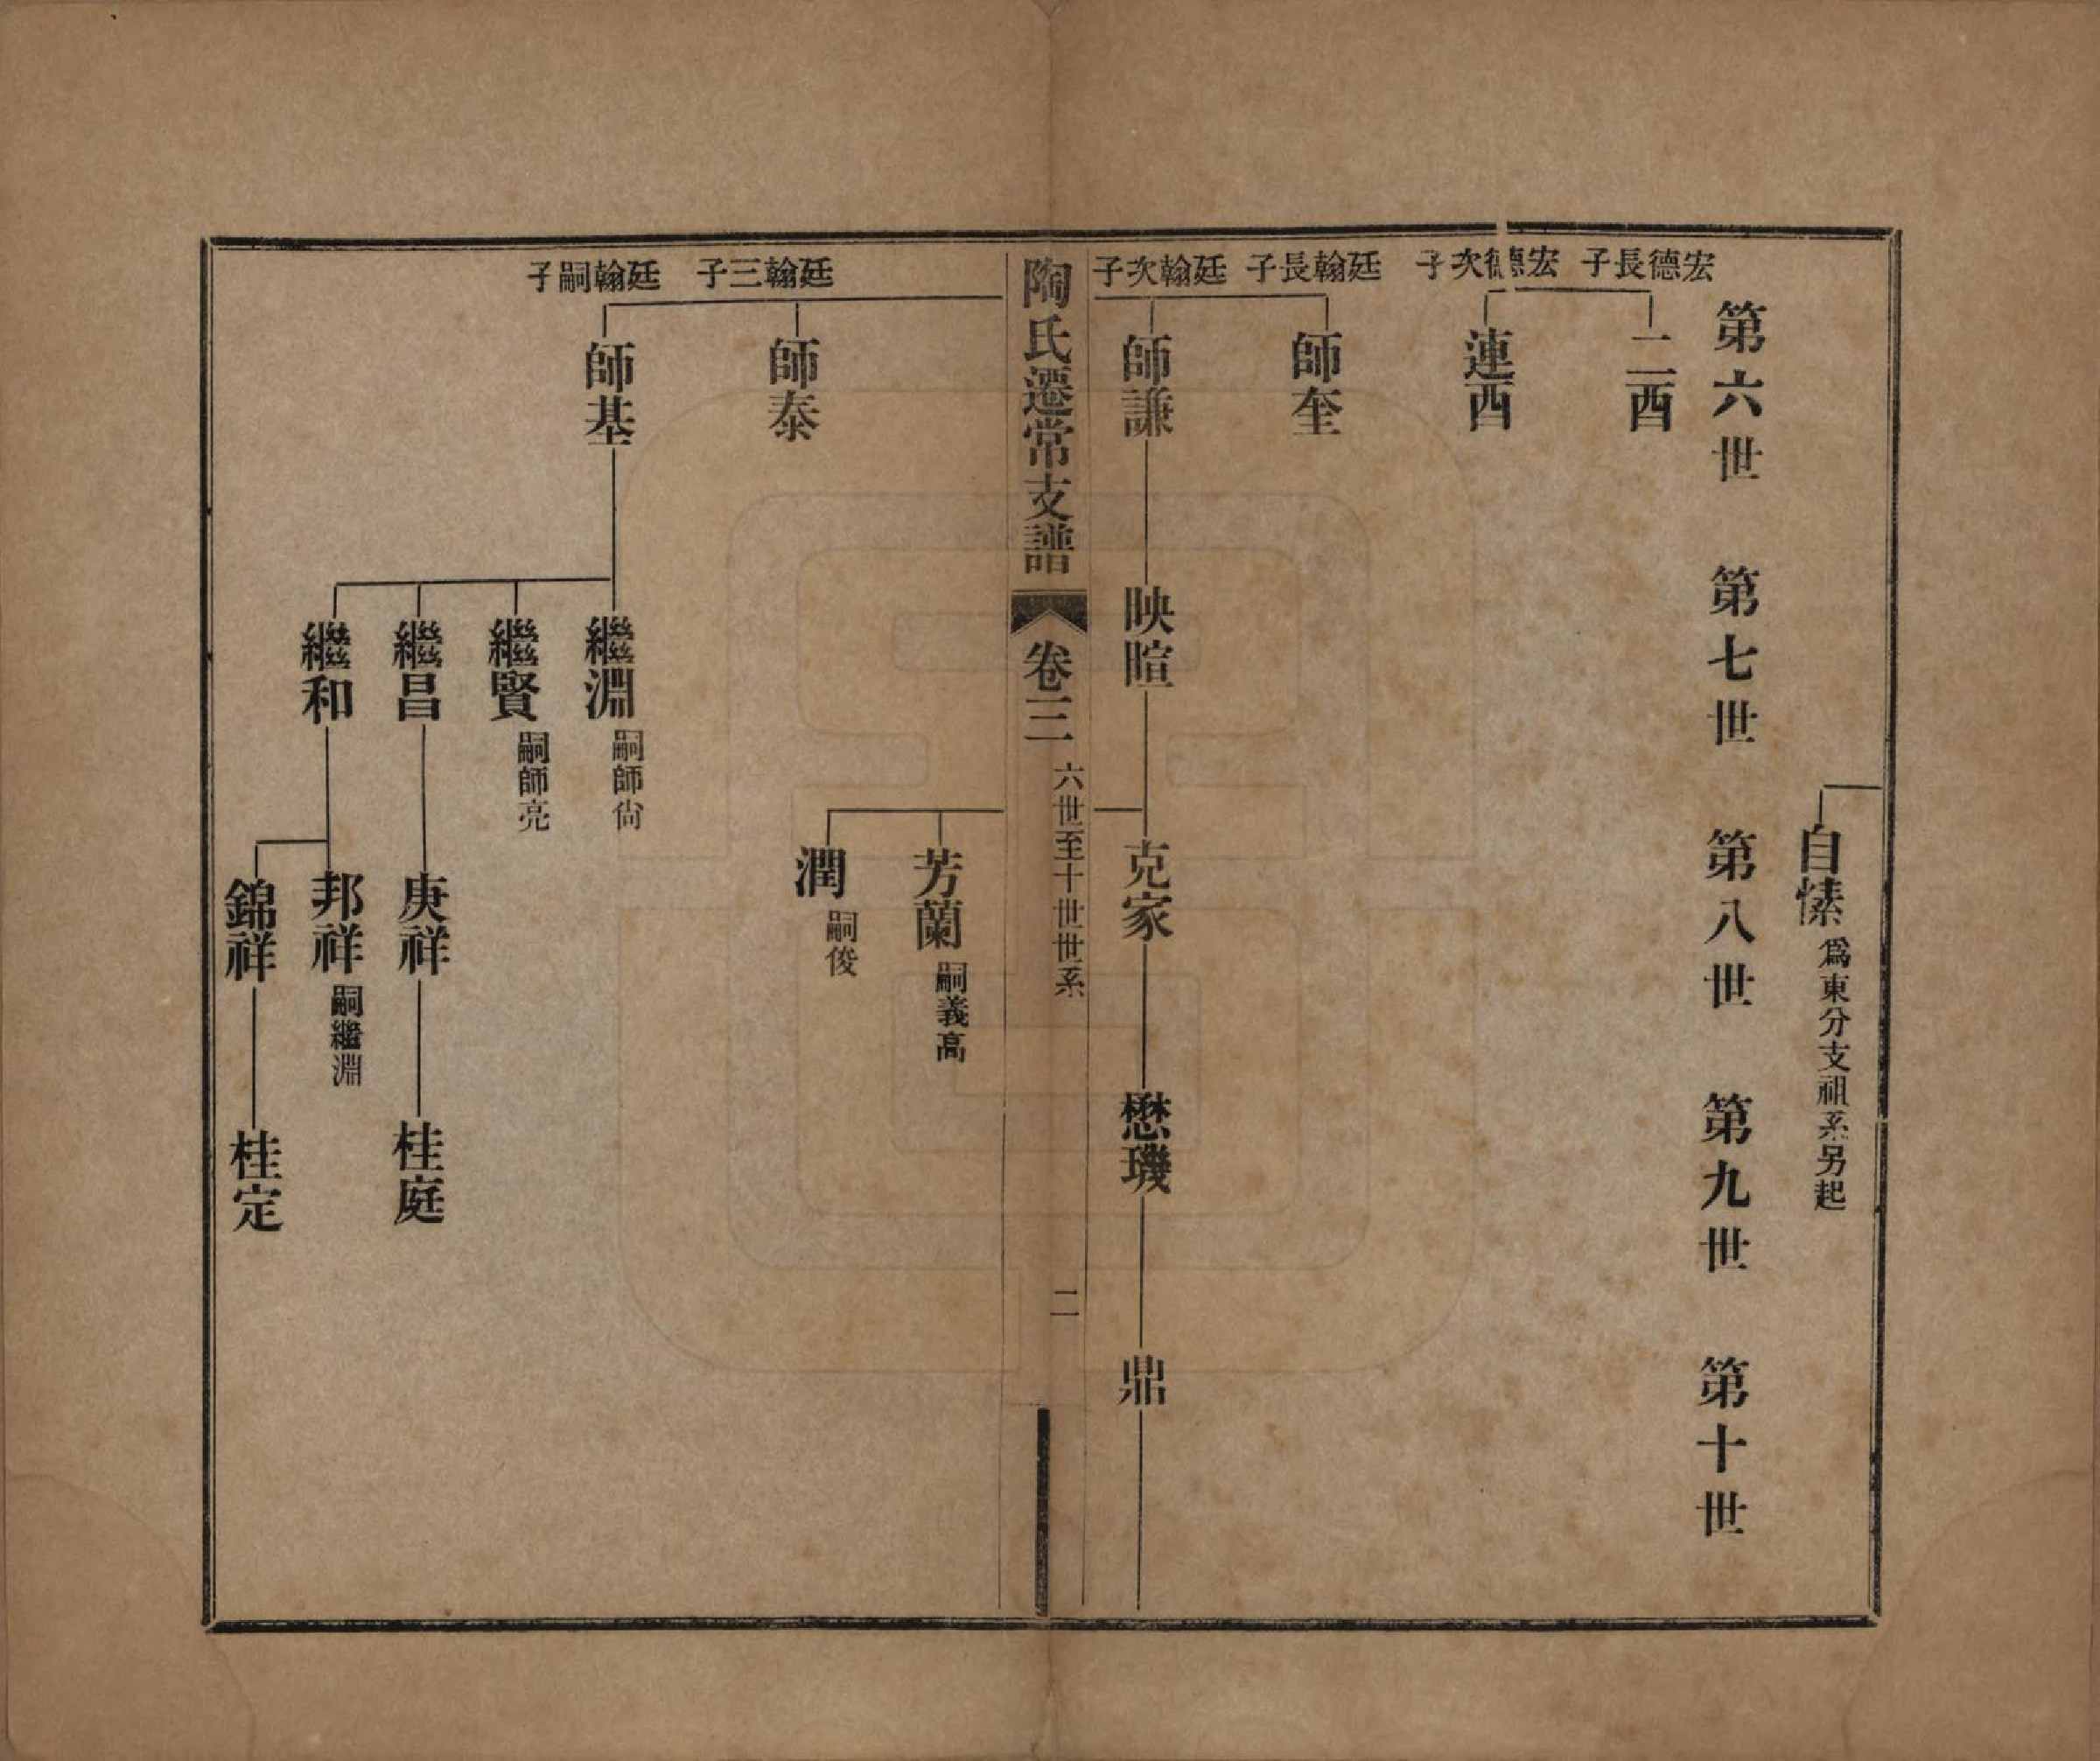 自愫
爲東分支祖系另起
第六世
第七世
第八世
第九世
第十世
宏德長子
二酉
宏德次子
連酉
廷翰長子
師奎
廷翰次子
師謙
映暄
克家
懋璣
鼎
陶氏遷常支譜
卷三
六世至十世世系
二
芳蘭
嗣義高
潤
嗣俊
廷翰三子
師泰
廷翰嗣子
師基
繼淵
嗣師尙
繼賢
嗣師亮
繼昌
庚祥
桂庭
繼和
邦祥
嗣繼淵
錦祥
桂定